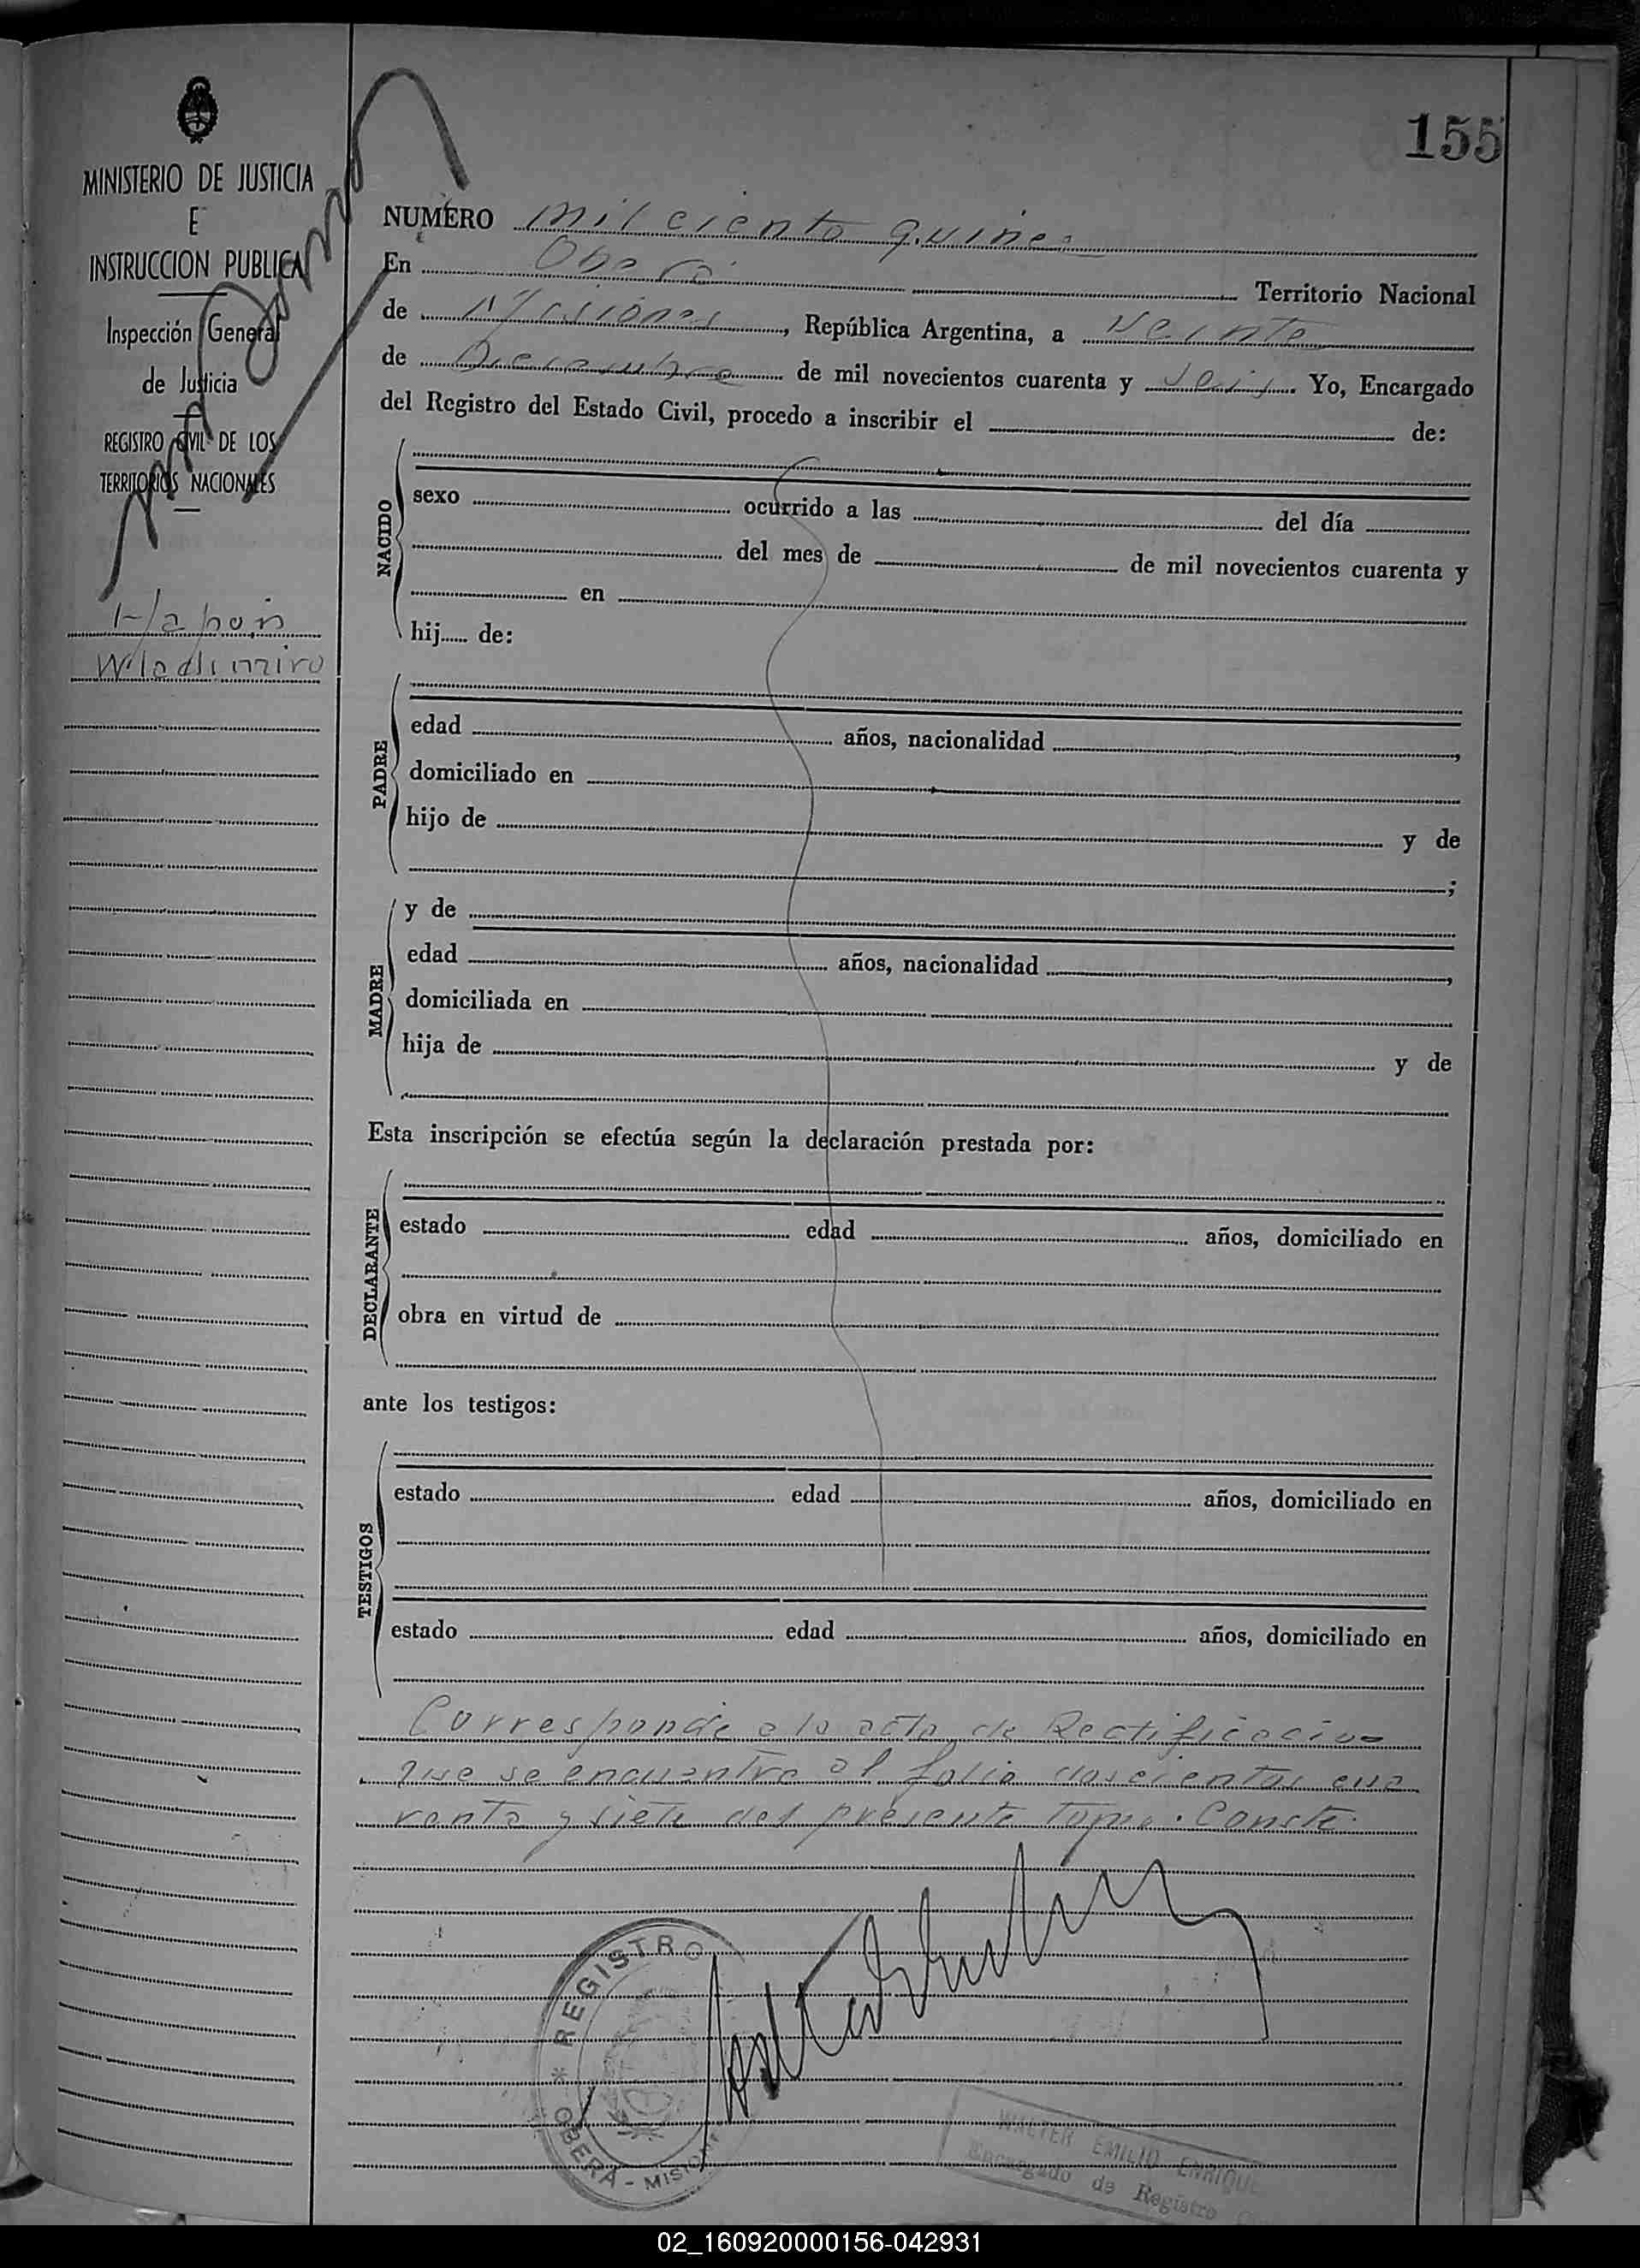 155
MINISTERIO DE JUSTICIA
E
INSTRUCCION PUBLICA
Inspección General
de Justicia
REGISTRO CIVIL DE LOS
TERRITORIOS NACIONALES
Wladimiro
NUMERO mil ciento quince
En Oberá Territorio Nacional
de Misiones, República Argentina, a veinte
de Diciembre de mil novecientos cuarenta y seis. Yo, Encargado
del Registro del Estado Civil, procedo a inscribir el de:
NACIDO
sexo ocurrido a las del día
del mes de de mil novecientos cuarenta y
en
hij de:
PADRE
edad años, nacionalidad ,
domiciliado en
hijo de y de
;
MADRE
y de
edad años, nacionalidad ,
domiciliada en
hija de y de
Esta inscripción se efectúa según la declaración prestada por:
DECLARANTE
estado edad años, domiciliado en
obra en virtud de
ante los testigos:
TESTIGOS
estado edad años, domiciliado en
estado edad años, domiciliado en
Corresponde a la acta de Rectificacion
que se encuentra al folio doscientos cua
renta y siete del presente tomo. Conste.
REGISTRO
OBERÁ - MISIONES
WALTER EMILIO ENRIQUE
Encargado de Registro
02_160920000156-042931